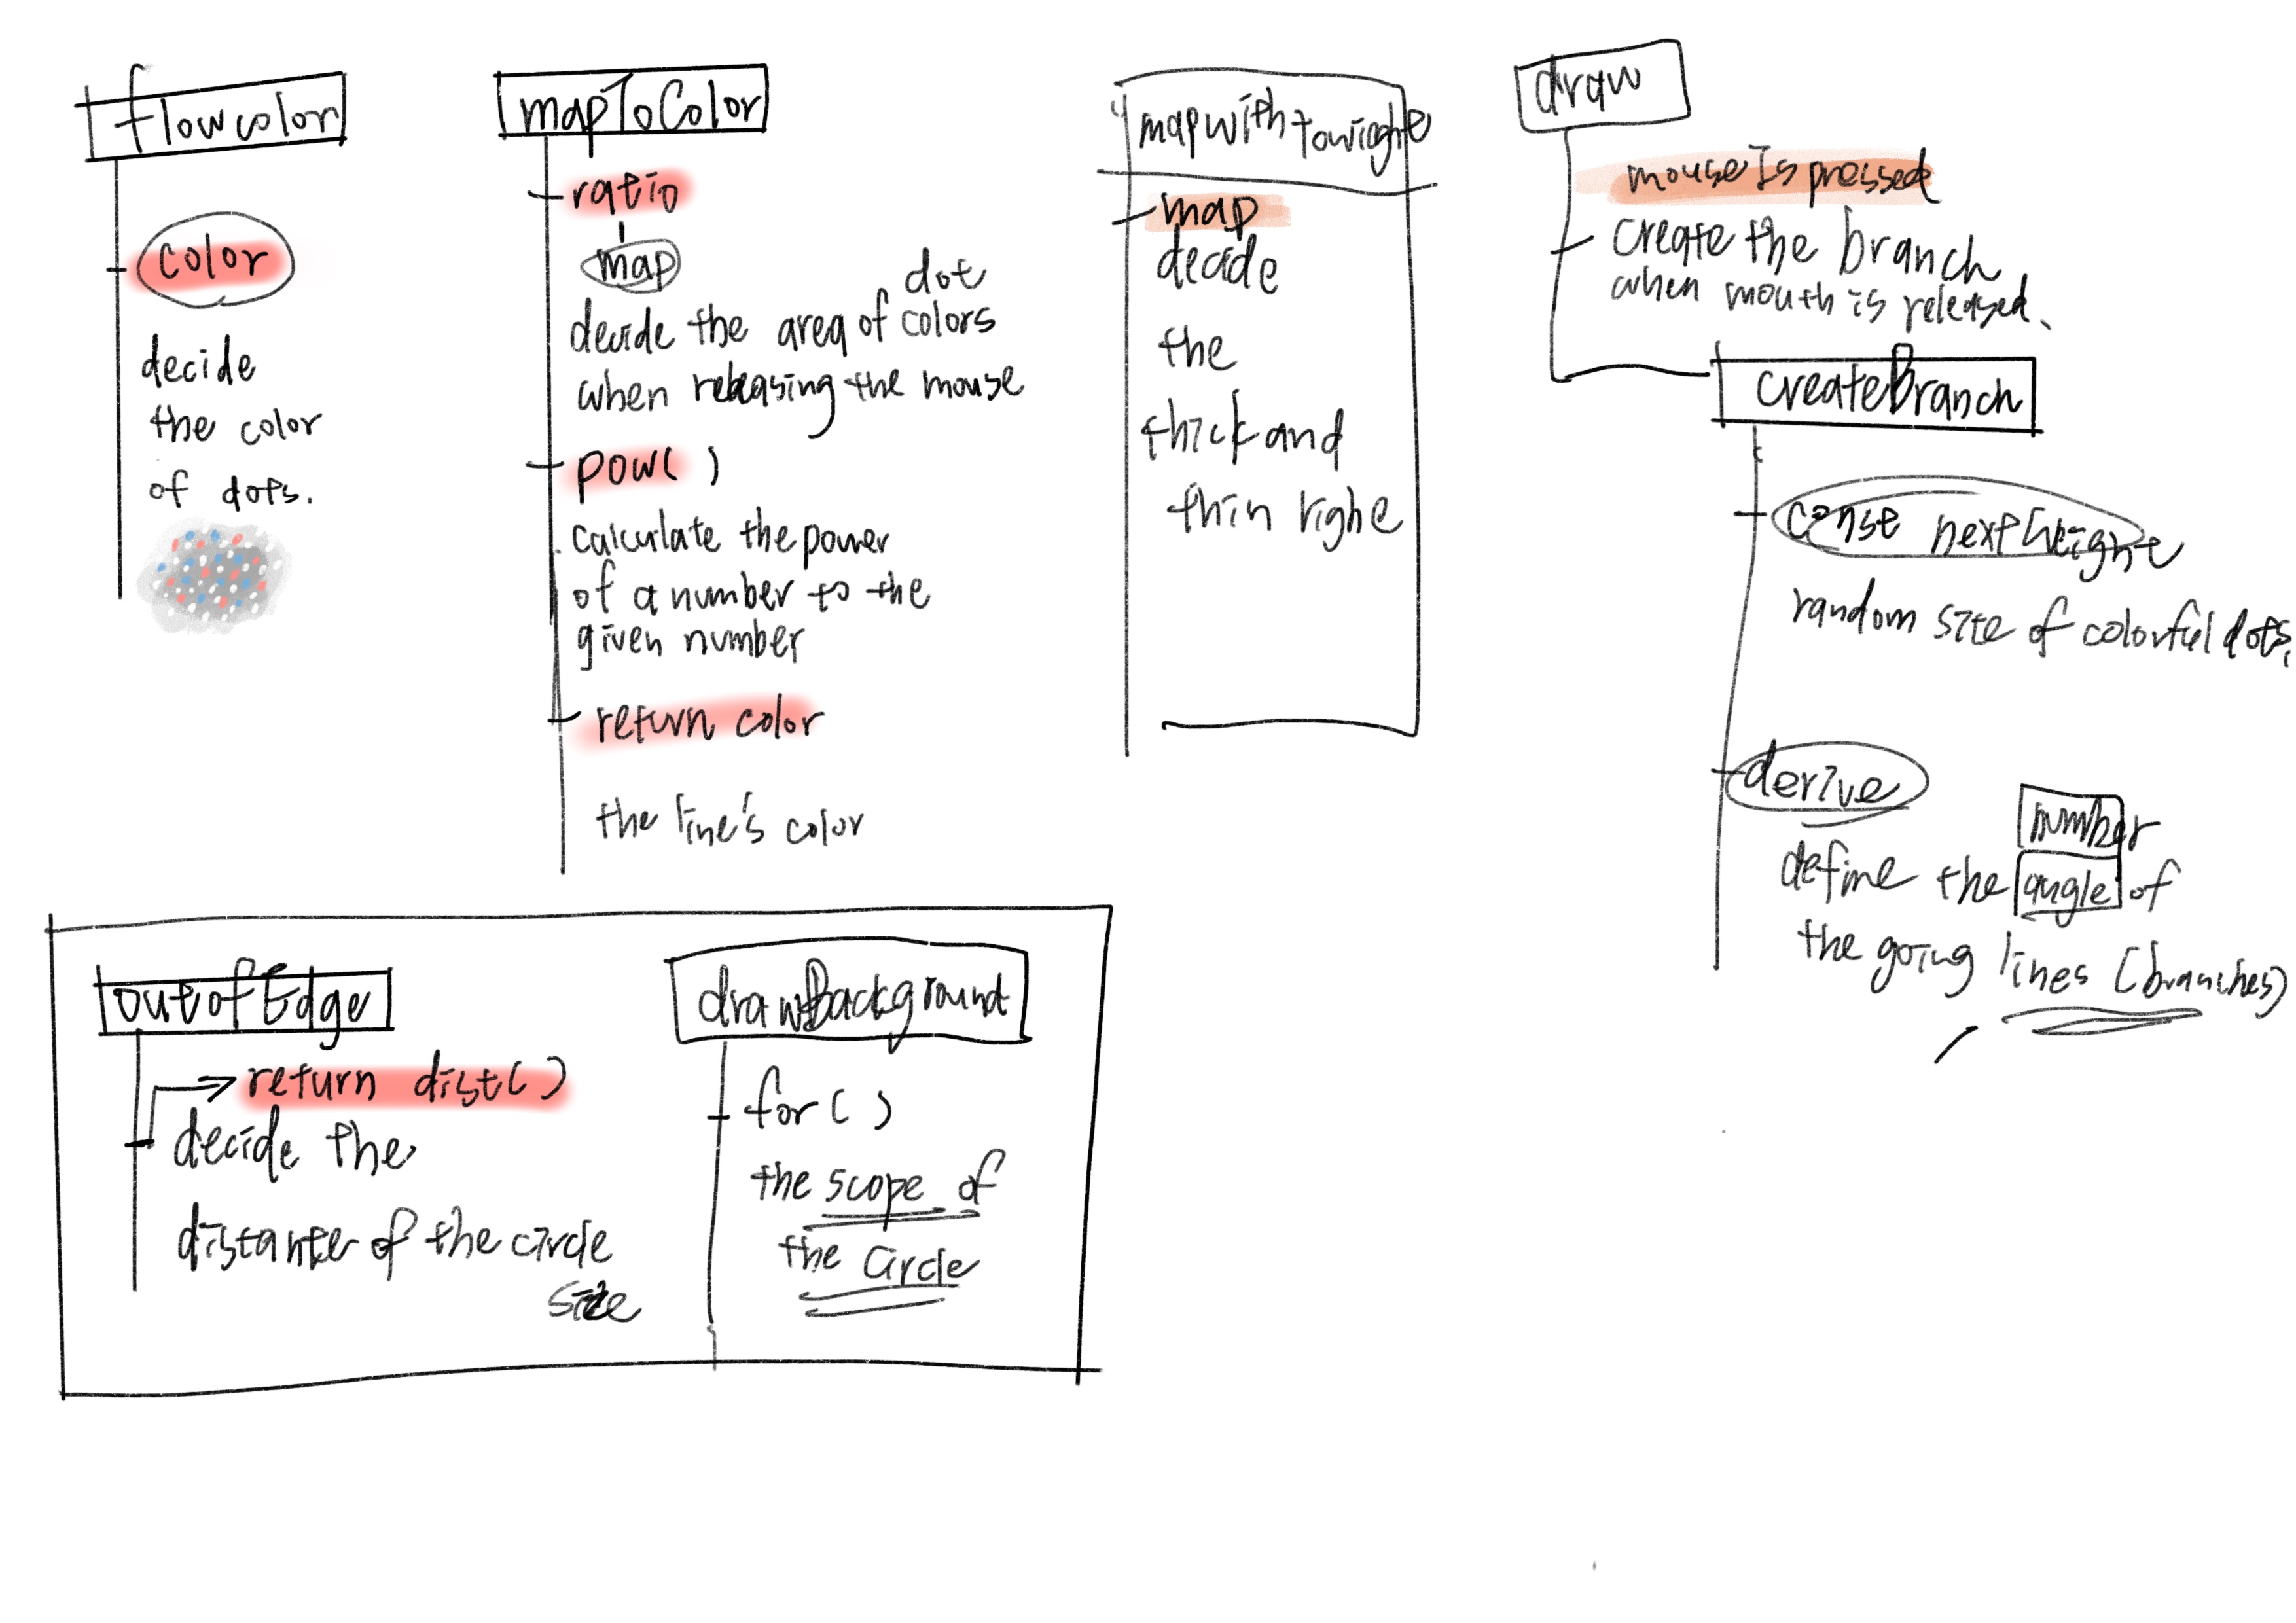 flowcolor
color
decide
the color
of dots.
mapToColor
ratio
map
dot
decide the area of colors
when releasing the mouse
pow( )
calculate the power
of a number to the
given number
return color
the line's color
map with
map
decide
the
thick and
thin righe
draw
mouse Is pressed
create the branch
when mouth is released.
createBranch
conse nextweight
random size of colorful dots.
derive
number
define the angle of
the going lines (branches)
outofEdge
return dist( )
decide the
distante of the circle
size
drawBackground
for ( )
the scope of
the circle